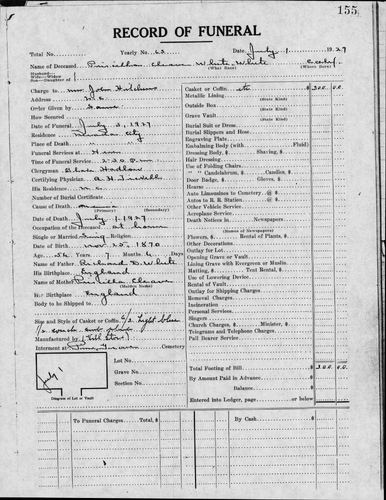 155
RECORD OF FUNERAL
Total No. Yearly No. 63 Date July 1 1927
Name of Deceased Priscilla Cleave White White
(What Race) (Where Born)
Husband—
Wife—Widow
Son—Daughter of
Charge to Mr John
Address N.C.
Order Given by Same
How Secured
Date of Funeral July 2, 1927
Residence City
Place of Death "
Funeral Services at Home
Time of Funeral Service 2:30 P.M.
Clergyman
Certifying Physician
His Residence N.C.
Number of Burial Certificate
Cause of Death
(Primary) (Secondary)
Date of Death July 1, 1927
Occupation of the Deceased at home
Single or Married Religion
Date of Birth Nov 25, 1870
Age 56 Years 7 Months 6 Days
Name of Father Richard D. White
His Birthplace England
Name of Mother Priscilla Cleave
(Maiden Name)
Her Birthplace England
Body to be Shipped to
Size and Style of Casket or Coffin 6/3 Light blue
Manufactured by
Interment at Cemetery
Lot No.
Grave No.
Section No.
Diagram of Lot or Vault
Casket or Coffin etc $ 300 00
(State Kind)
Metallic Lining
(State Kind)
Outside Box
(State Kind)
Grave Vault
(State Kind)
Burial Suit or Dress
Burial Slippers and Hose
Engraving Plate
Embalming Body (with Fluid)
Dressing Body, $ Shaving, $
Hair Dressing
Use of Folding Chairs
" " Candelabrum, $ Candles, $
Door Badge, $ Gloves, $
Hearse
Auto Limousines to Cemetery @ $
Autos to R. R. Station @ $
Other Vehicle Service
Aeroplane Service
Death Notices in Newspapers
(Names of Newspapers)
Flowers, $ Rental of Plants, $
Other Decorations
Outlay for Lot
Opening Grave or Vault
Lining Grave with Evergreen or Muslin
Matting, $ Tent Rental, $
Use of Lowering Device
Rental of Vault
Outlay for Shipping Charges
Removal Charges
Incineration
Personal Services
Singers
Church Charges, $ Minister, $
Telegrams and Telephone Charges
Pall Bearer Service
Total Footing of Bill $ 300 00
By Amount Paid in Advance
Balance $
Entered into Ledger, page or below
To Funeral Charges Total, $ By Cash $